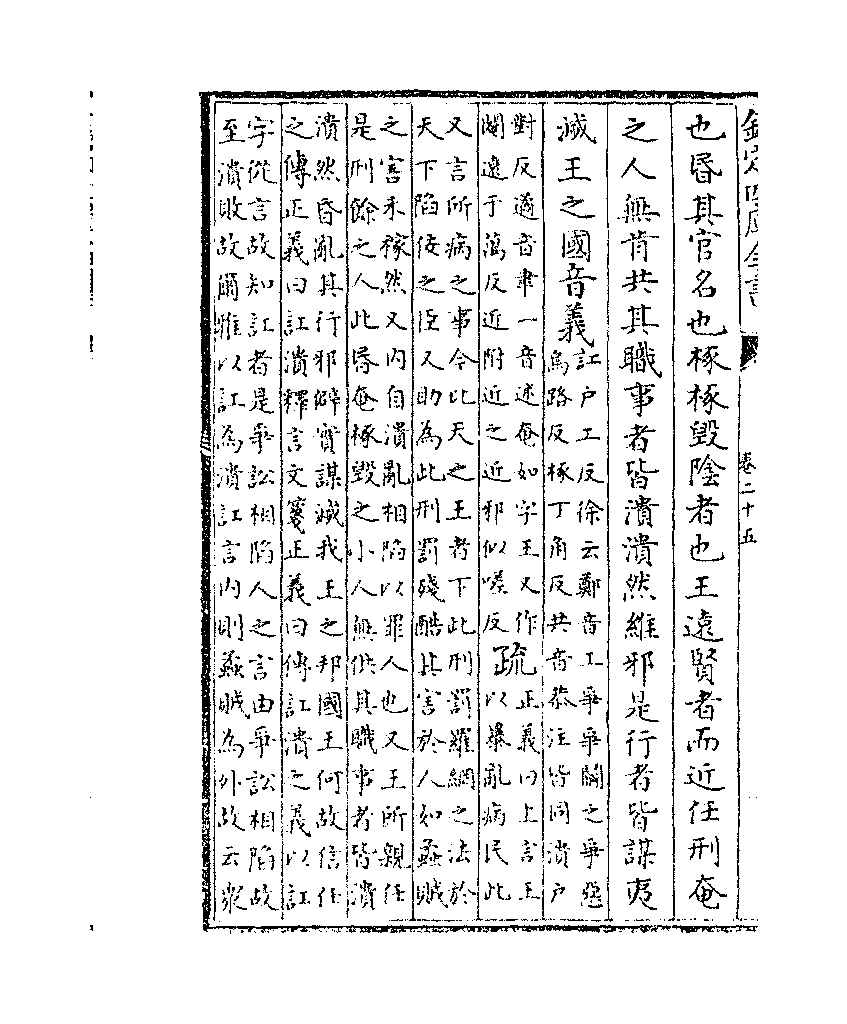 欽定四庫全書
卷二十五
也昬其官名也椓椓毁陰者也王遠賢者而近任刑奄
之人無肯共其職事者皆潰潰然維邪是行者皆謀夷
滅王之國音義
訌户工反徐云鄭音工爭爭鬭之爭惡
烏路反椓丁角反共音恭注皆同潰户
對反遹音聿一音述奄如字王又作
閹遠于萬反近附近之近邪似嗟反
疏
正義曰上言王
以暴亂病民此
又言所病之事令此天之王者下此刑罰羅網之法於
天下陷佞之臣又助為此刑罰殘酷其害於人如蟊賊
之害禾稼然又内自潰亂相陷以罪人也又王所親任
是刑餘之人此昬奄椓毁之小人無供其職事者皆潰
潰然昏亂其行邪僻實謀滅我王之邦國王何故信任
之傳正義曰訌潰釋言文箋正義曰傳訌潰之義以訌
字從言故知訌者是爭訟相陷人之言由爭訟相陷故
至潰敗故爾雅以訌為潰訌言内則蟊賊為外故云衆